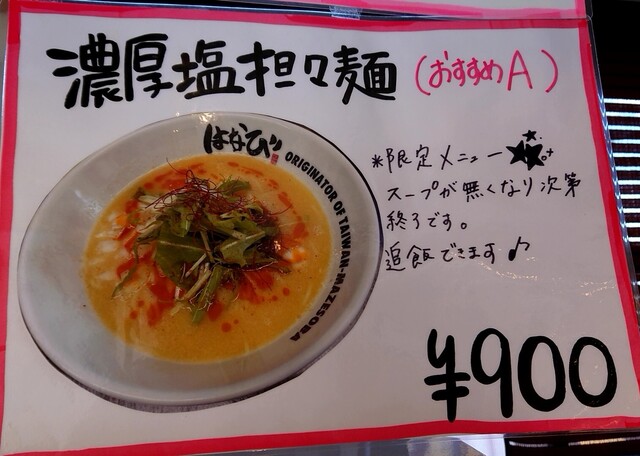 濃厚塩担々麺 (おすすめA)
はなび
ORIGINATOR OF TAIWAN-MAZESOBA
*限定メニュー
スープが無くなり次第
終了です。
追飯できます♪
¥900